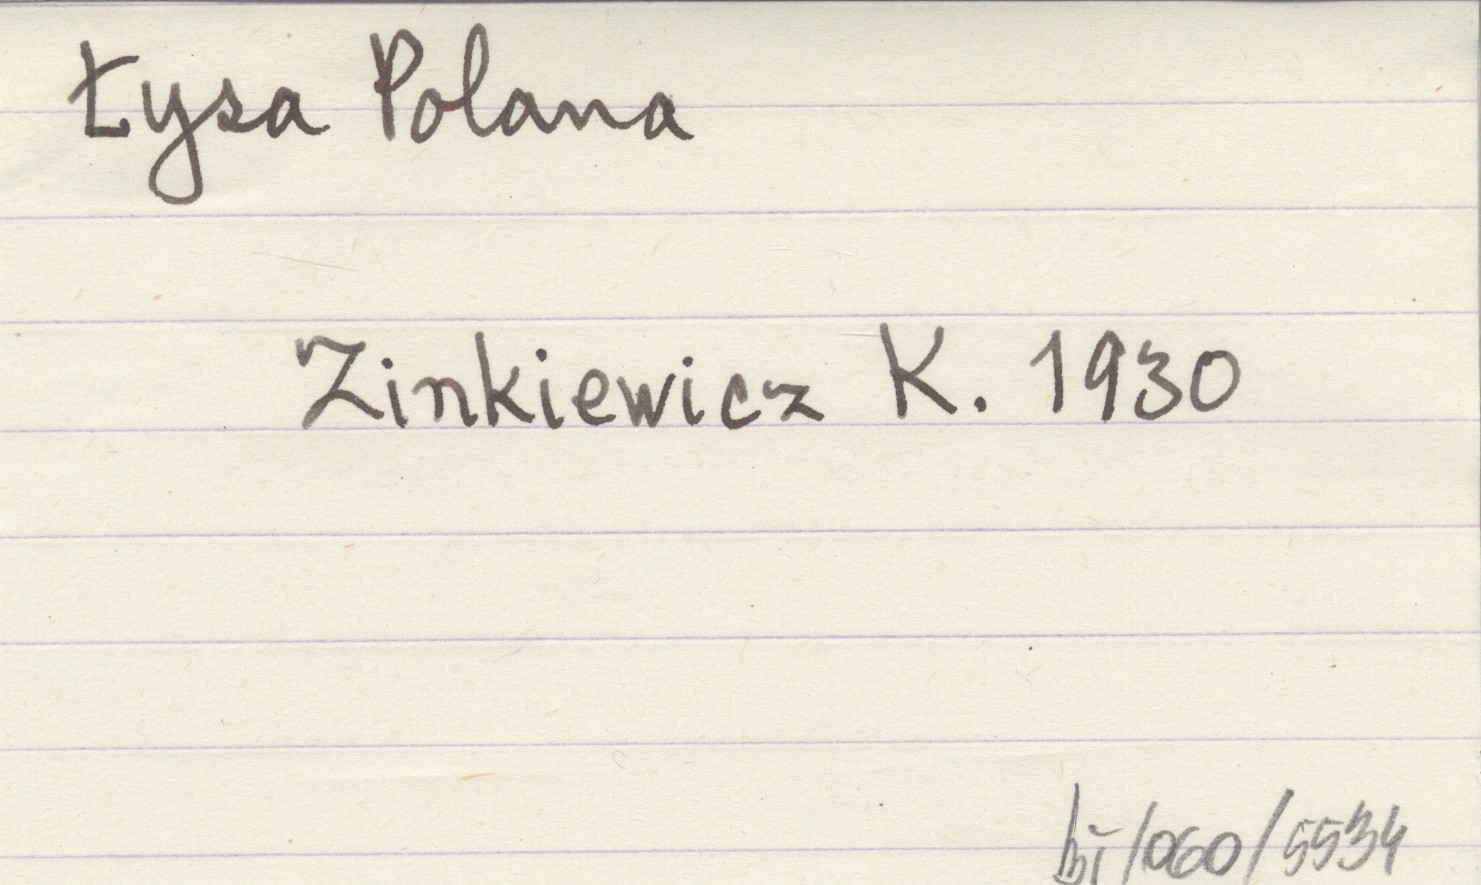 Łysa Polana
Zinkiewicz K. 1930
bi/060/5534